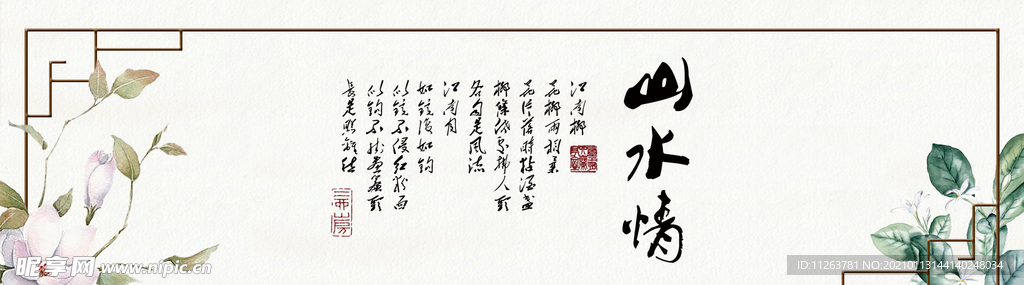 山水情
江南柳
花柳兩相柔
花片落時粘酒盞
柳條低處拂人頭
各自是風流
江南月
如鏡復如鉤
似鏡不侵紅粉面
似鉤不挂畫簾頭
長是照離愁
昵享网 www.nipic.cn
ID:11263781 NO:20210113144140248034